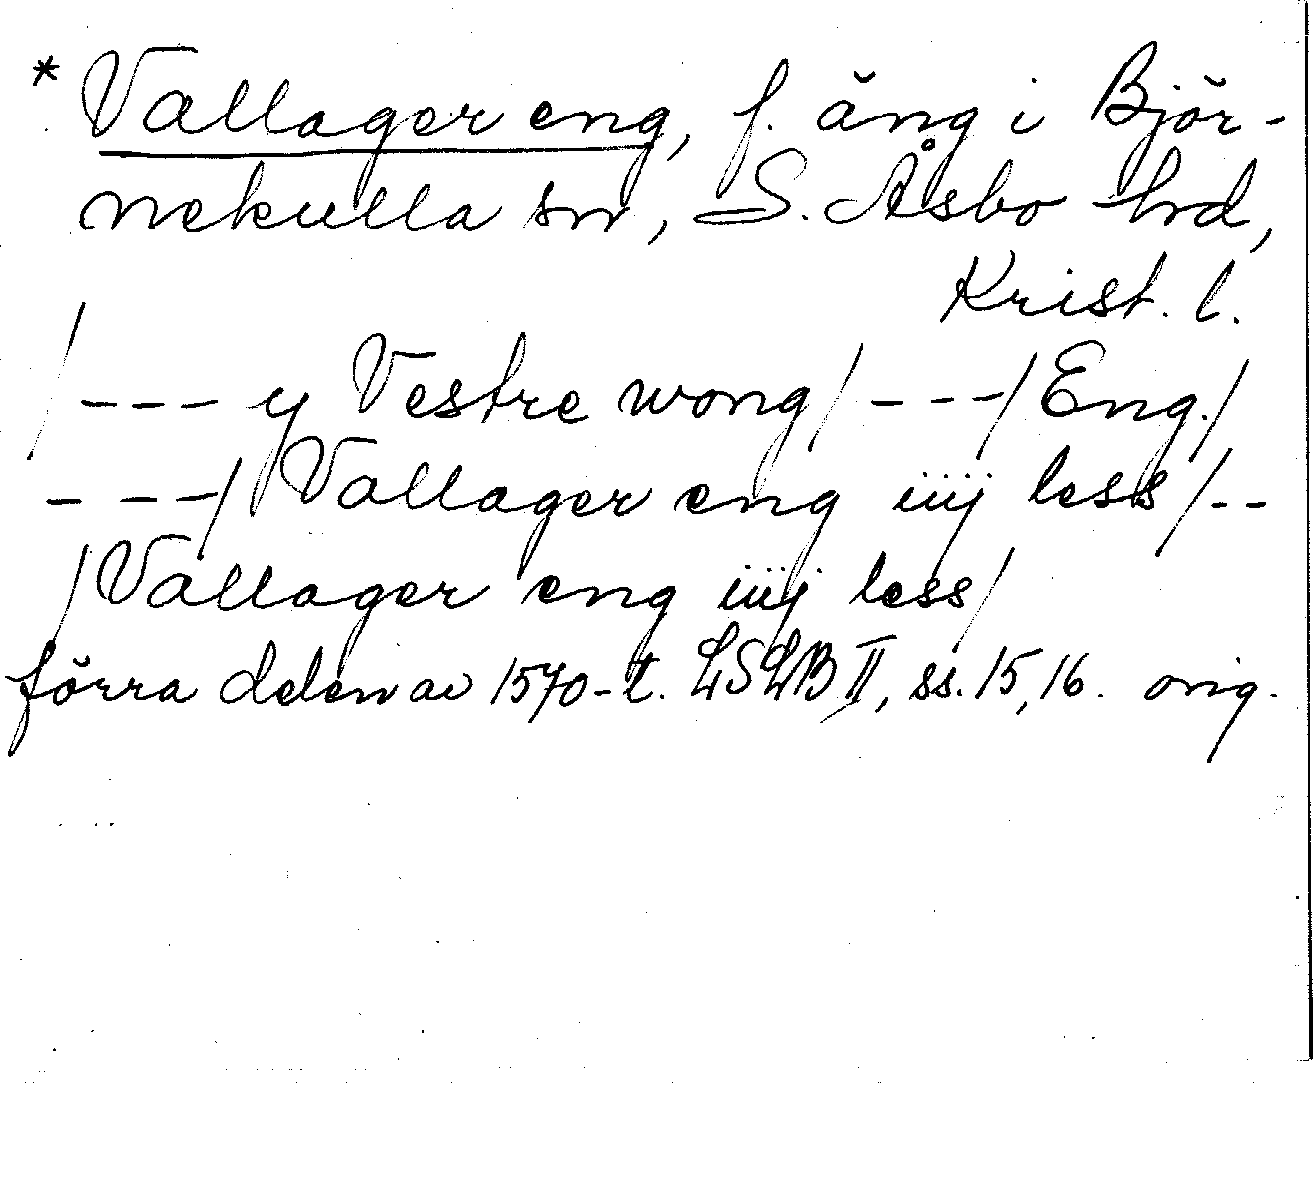 * Vallager eng, f. äng i Björ-
nekulla sn, S. Åsbo hd,
Krist. l.
/--- y Vestre wong/---/Eng./
---/Vallager eng iiij less/--
/Vallager eng iiij less/
förra delen av 1570-t. LSLB II, ss. 15, 16. orig.